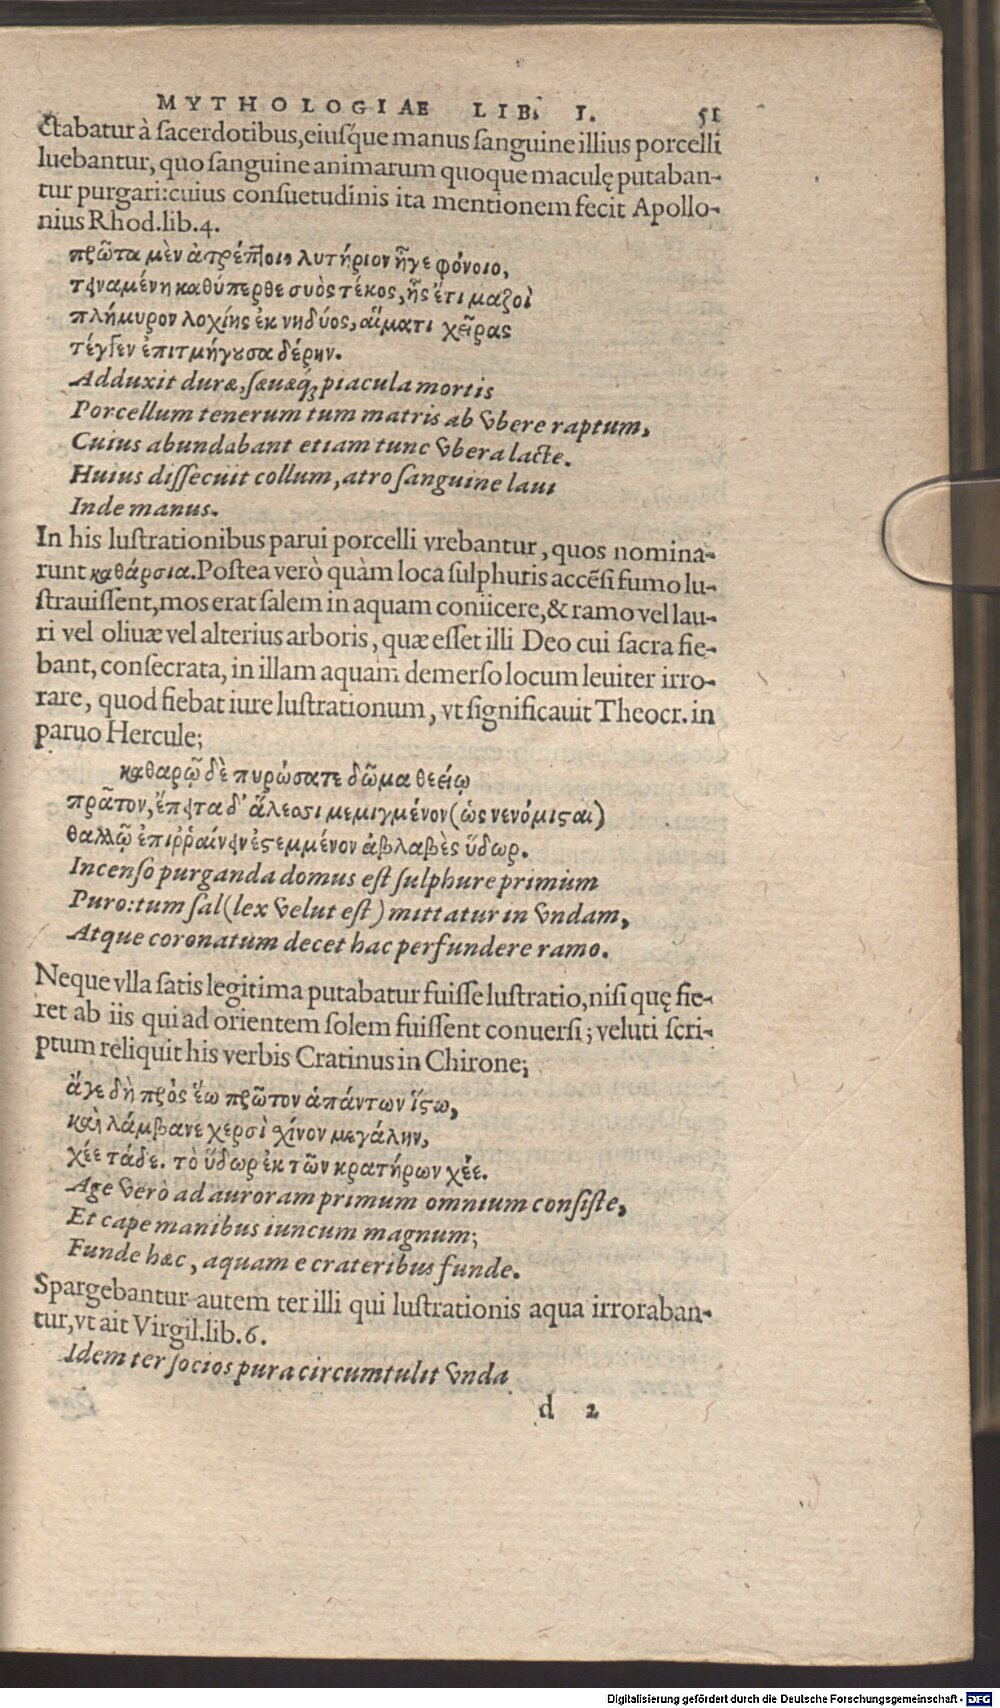 MYTHOLOGIAE LIB. I. 51
ctabatur à sacerdotibus, eiusque manus sanguine illius porcelli
luebantur, quo sanguine animarum quoque maculę putaban-
tur purgari: cuius consuetudinis ita mentionem fecit Apollo-
nius Rhod. lib. 4.
πρῶτα μὲν ἀτρέπτοιο λυτήριον ἧγε φόνοιο,
τειναμένη καθύπερθε συὸς τέκος, ἧς ἔτι μαζοὶ
πλήμυρον λοχίης ἐκ νηδύος, αἵματι χεῖρας
τέγγεν ἐπιτμήγουσα δέρην.
Adduxit duræ, sæuæq; piacula mortis
Porcellum tenerum tum matris ab vbere raptum,
Cuius abundabant etiam tunc vbera lacte.
Huius dissecuit collum, atro sanguine laui
Inde manus.
In his lustrationibus parui porcelli vrebantur, quos nomina-
runt καθάρσια. Postea verò quàm loca sulphuris accēsi fumo lu-
strauissent, mos erat salem in aquam coniicere, & ramo vel lau-
ri vel oliuæ vel alterius arboris, quæ esset illi Deo cui sacra fie-
bant, consecrata, in illam aquam demerso locum leuiter irro-
rare, quod fiebat iure lustrationum, vt significauit Theocr. in
paruo Hercule;
καθαρῷ δὲ πυρώσατε δῶμα θεείῳ
πρᾶτον, ἔπειτα δ' ἅλεσσι μεμιγμένον (ὡς νενόμισται)
θαλλῷ ἐπιῤῥαίνειν ἐστεμμένον ἀβλαβὲς ὕδωρ.
Incenso purganda domus est sulphure primùm
Puro: tum sal (lex velut est) mittatur in vndam,
Atque coronatum decet hac perfundere ramo.
Neque vlla satis legitima putabatur fuisse lustratio, nisi quę fie-
ret ab iis qui ad orientem solem fuissent conuersi; veluti scri-
ptum reliquit his verbis Cratinus in Chirone;
ἄγε δὴ πρὸς ἕω πρῶτον ἁπάντων ἵστω,
καὶ λάμβανε χερσὶ χῖνον μεγάλην,
χέε τάδε. τὸ ὕδωρ ἐκ τῶν κρατήρων χέε.
Age verò ad auroram primum omnium consiste,
Et cape manibus iuncum magnum;
Funde hæc, aquam e crateribus funde.
Spargebantur autem ter illi qui lustrationis aqua irroraban-
tur, vt ait Virgil. lib. 6.
Idem ter socios pura circumtulit vnda
d 2
Digitalisierung gefördert durch die Deutsche Forschungsgemeinschaft - DFG